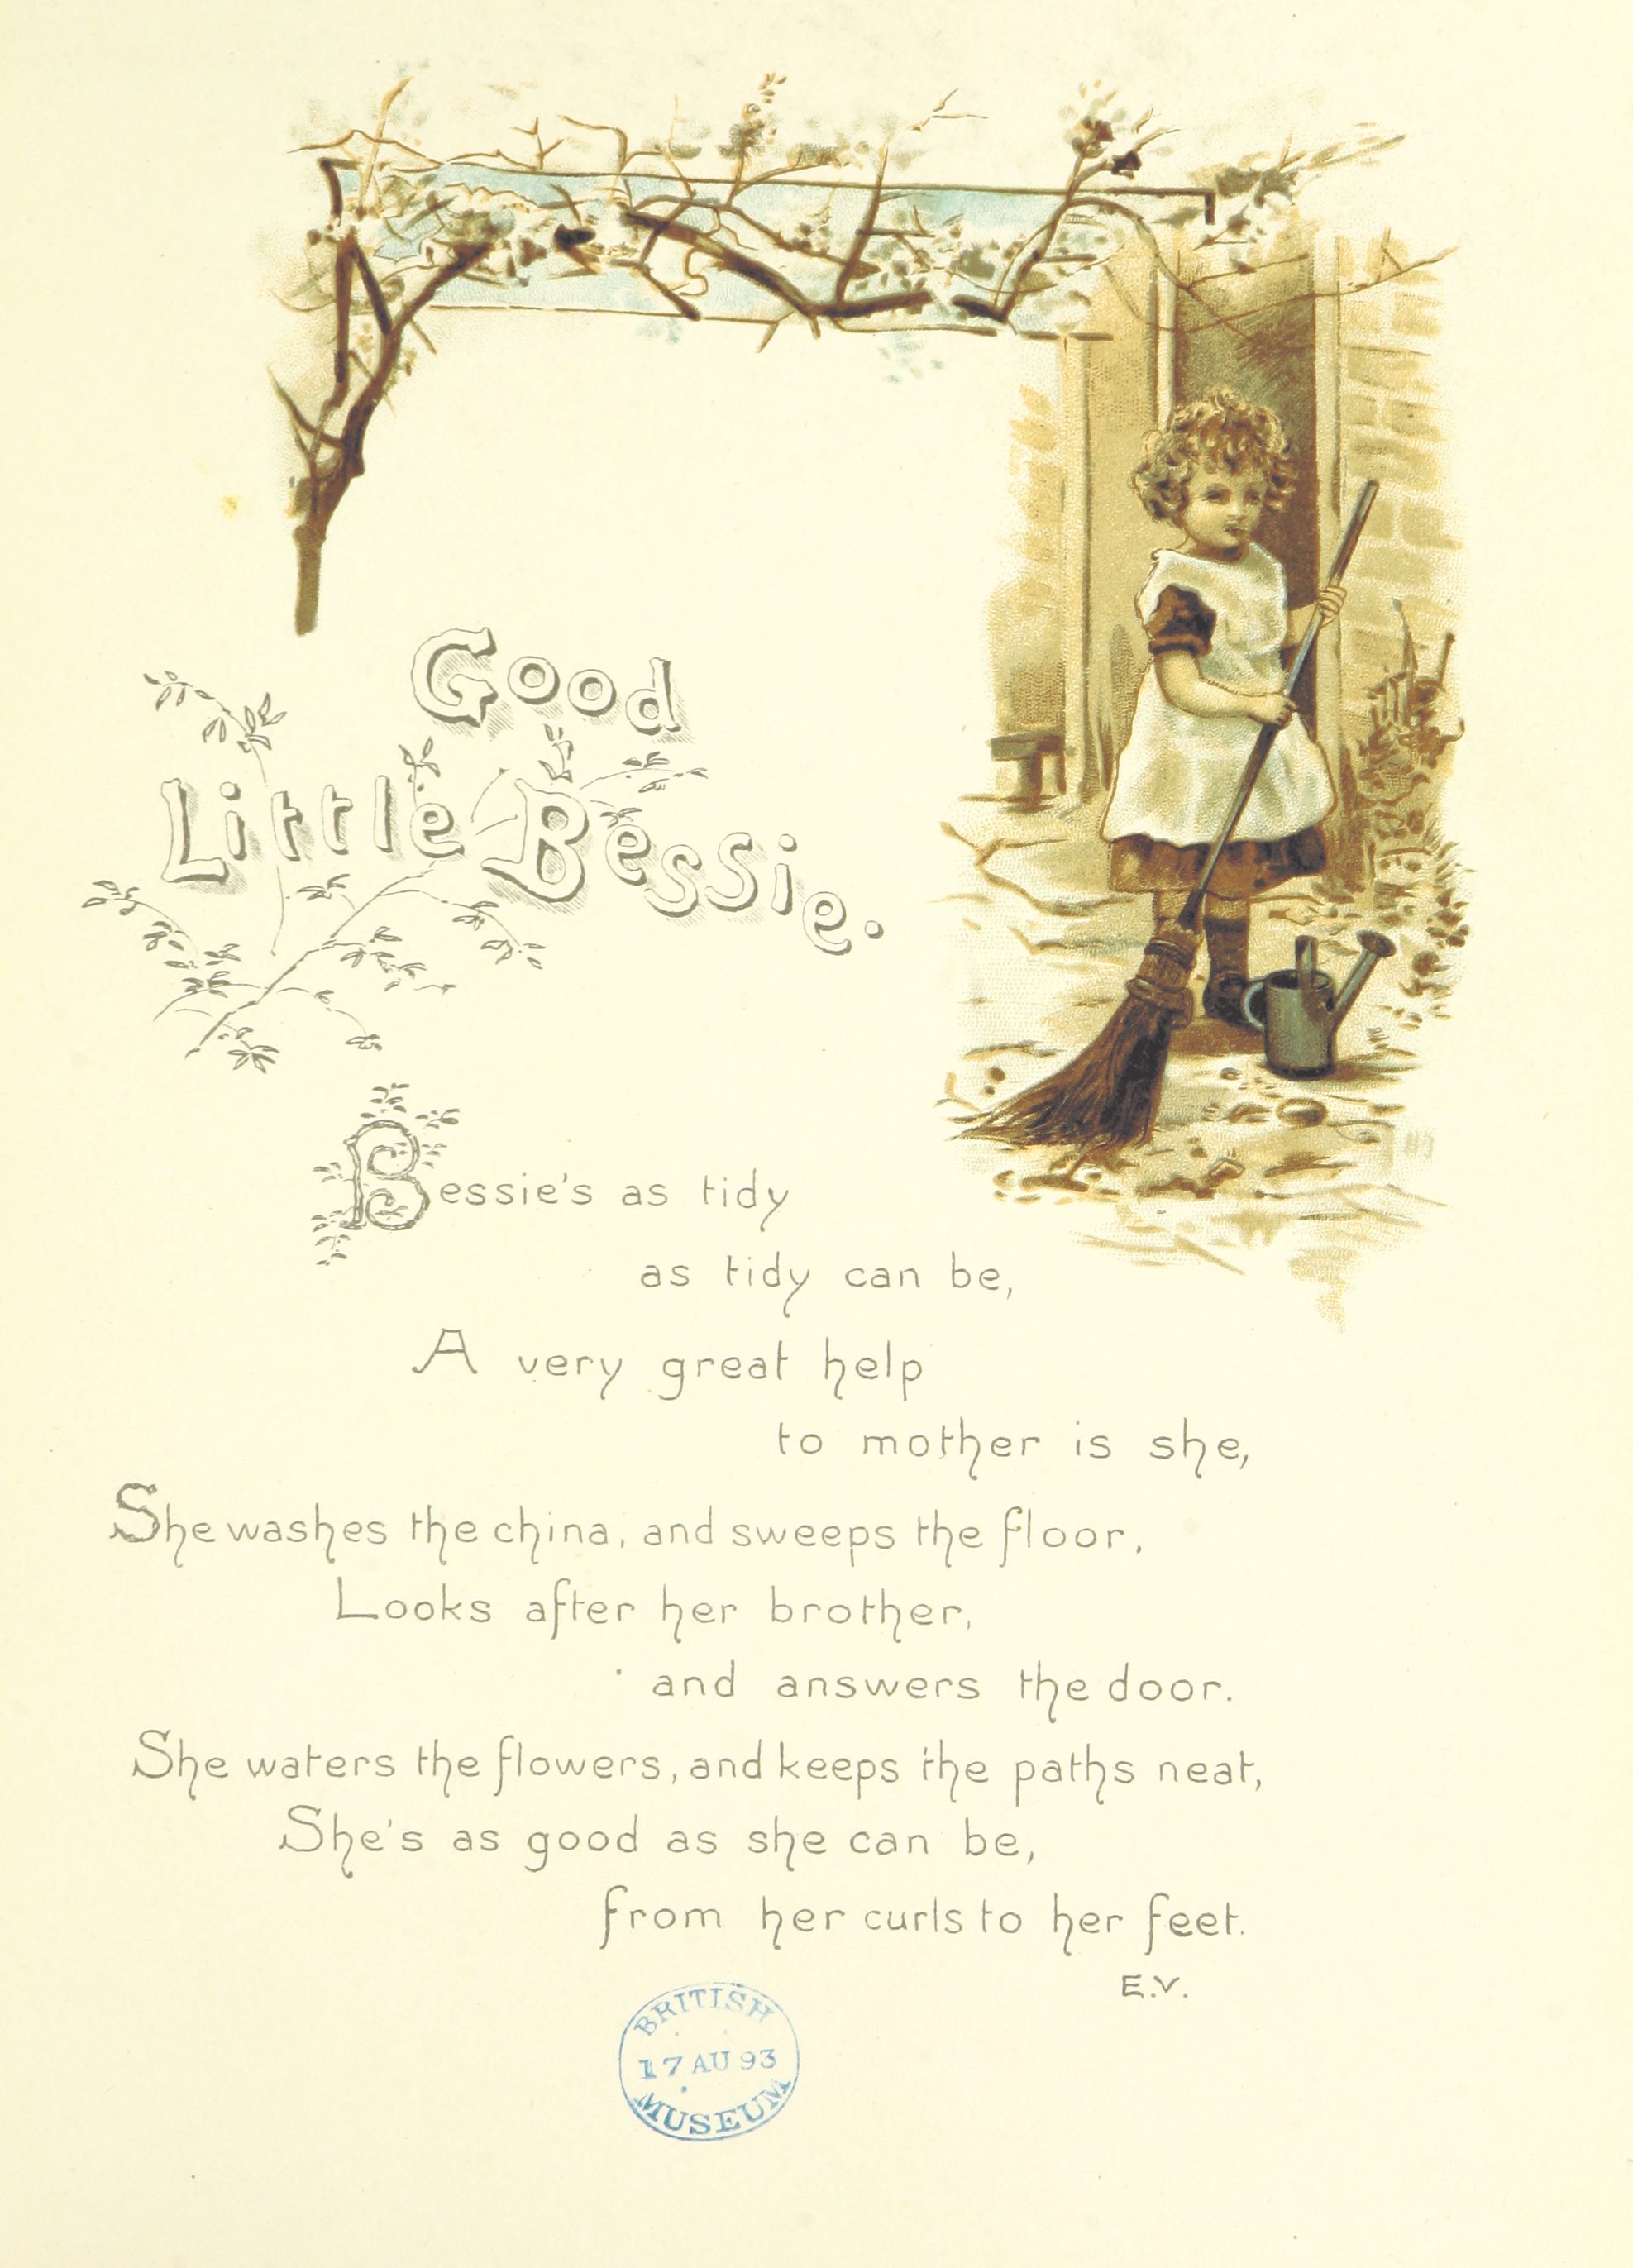 Good
Little Bessie.
Bessie's as tidy
as tidy can be,
A very great help
to mother is she,
She washes the china, and sweeps the floor,
Looks after her brother,
and answers the door.
She waters the flowers, and keeps the paths neat,
She's as good as she can be,
from her curls to her feet.
E.V.
BRITISH
17 AU 93
MUSEUM